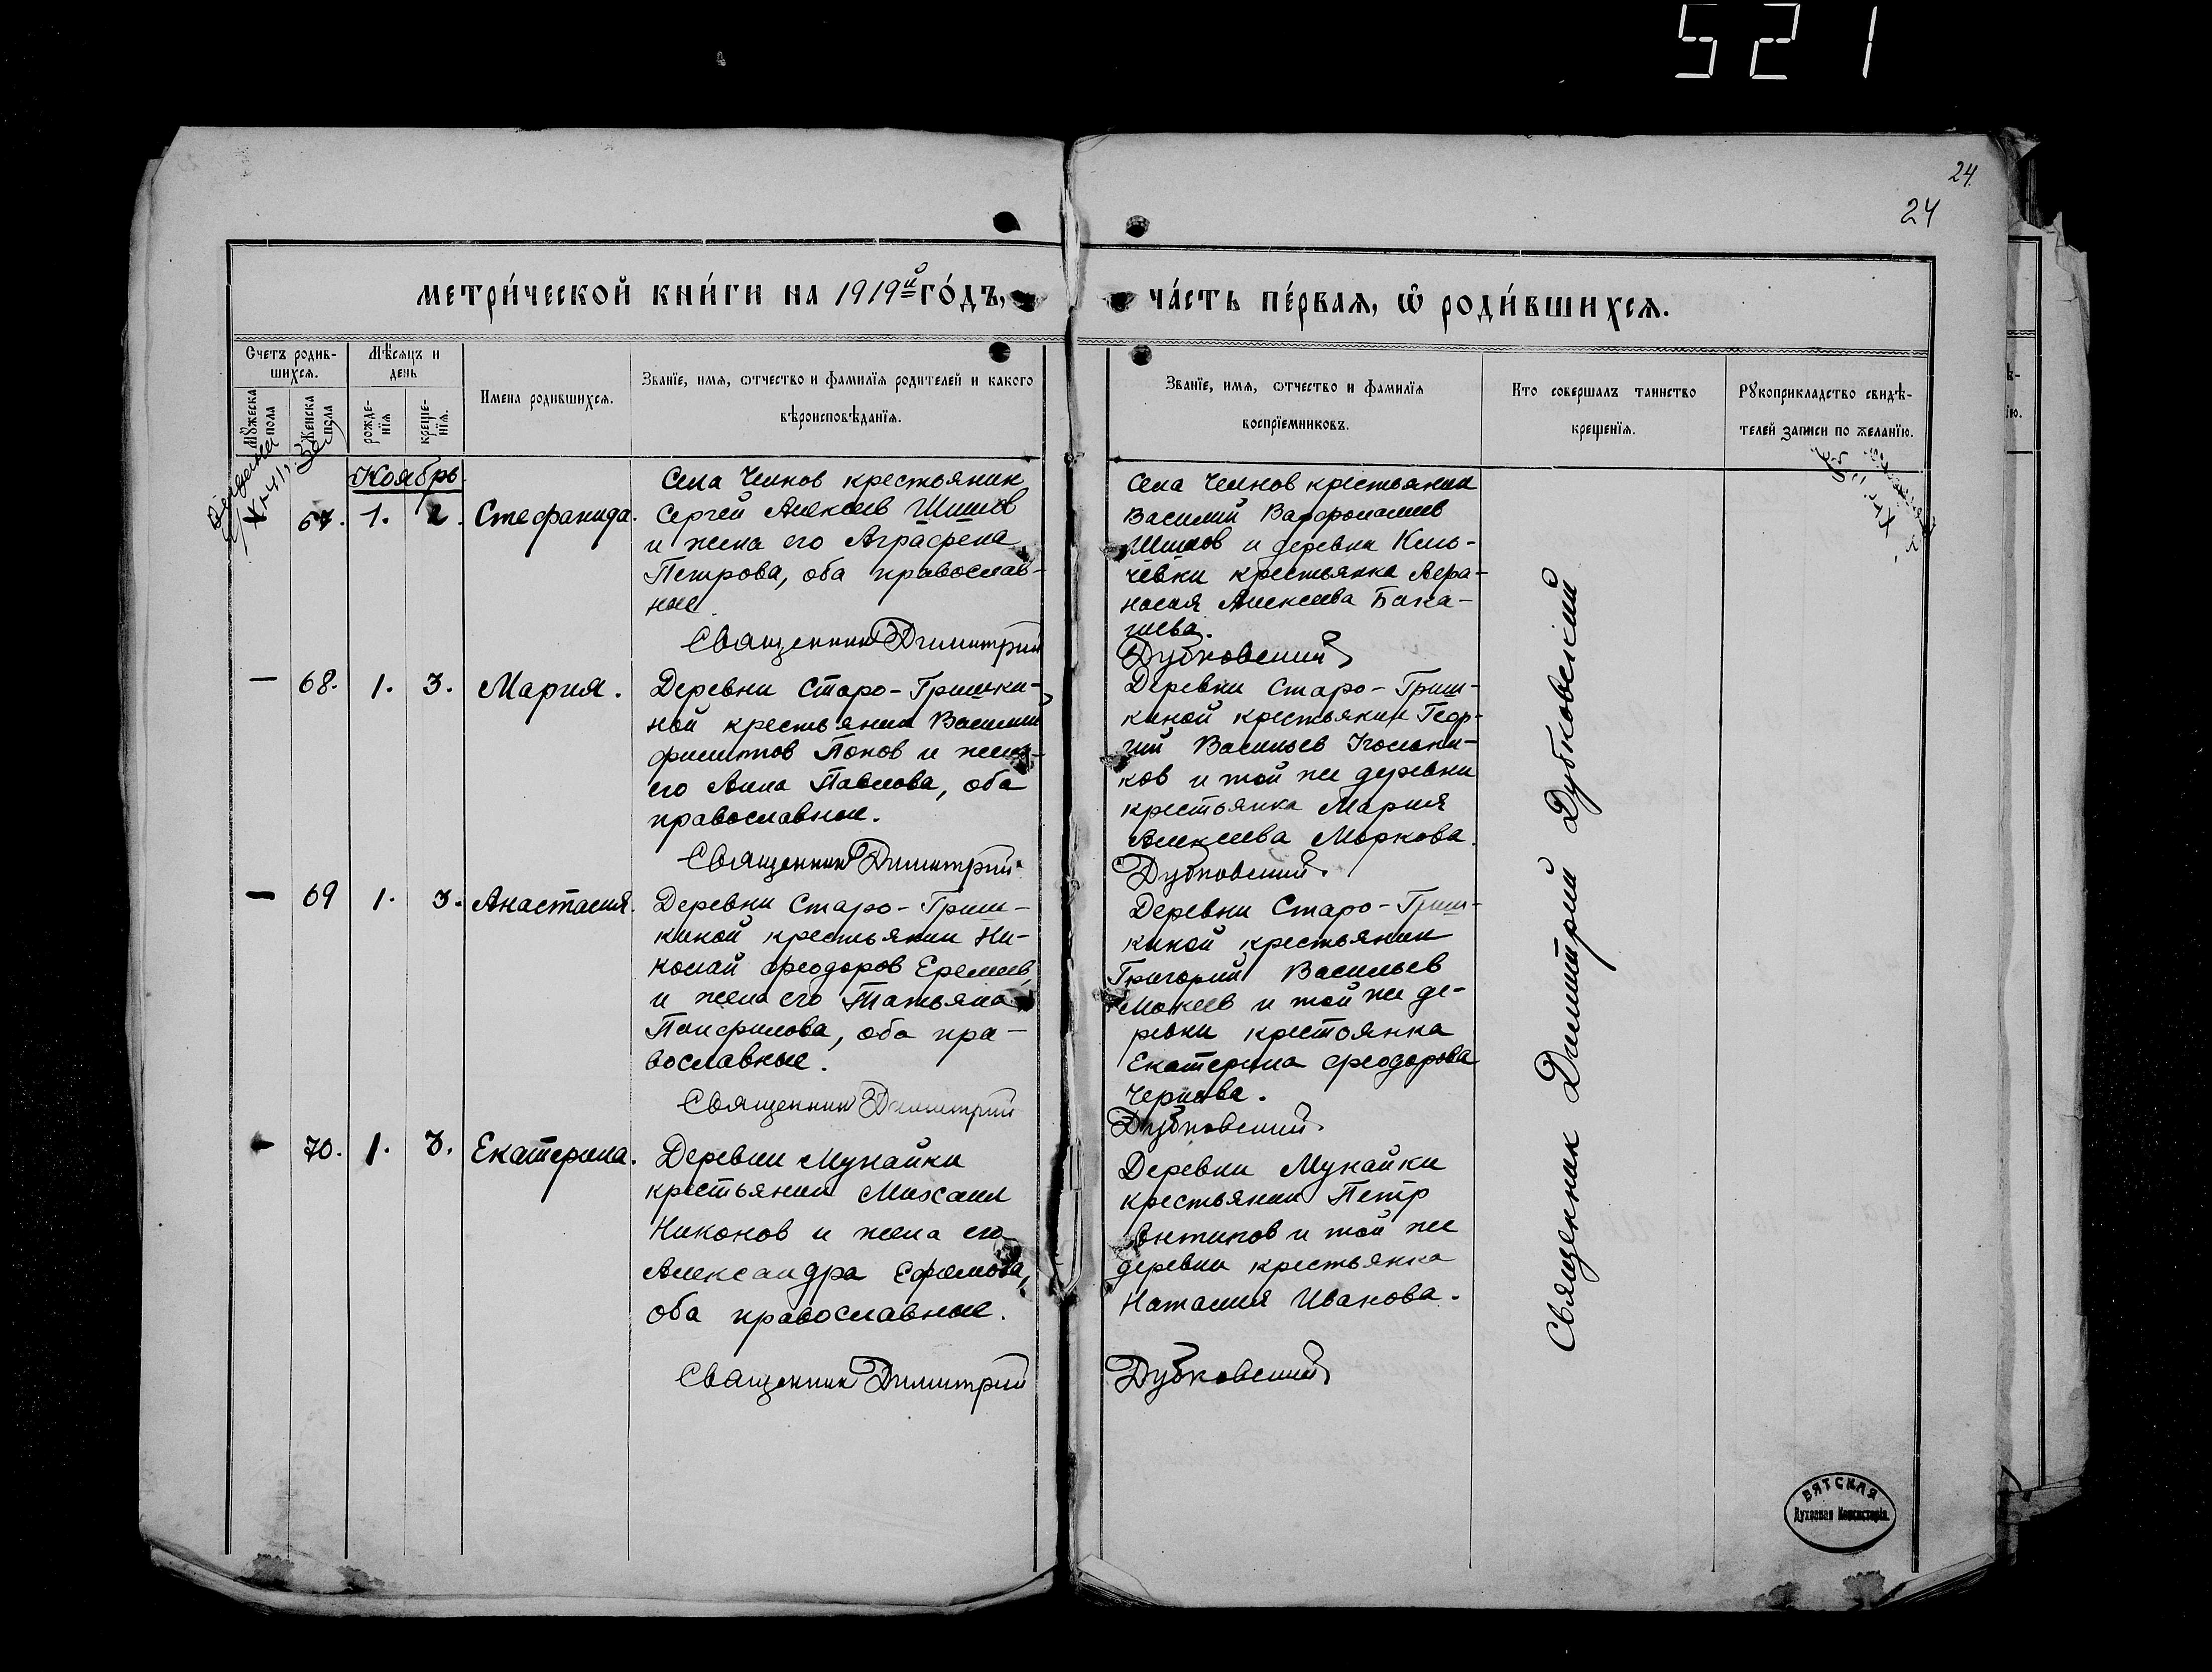 521
24.
24
метри́ческой кни́ги на 1919й го́дъ,
ча́сть пе́рвая, ѡ҆ роди́вшихся.
Счетъ родив-
шихся.
Мѣсяцъ и
день
Имена родившихся.
Званїе, имя, ѿчество и фамилїя родителей и какого
вѣроисповѣданїя.
Званїе, имя, ѿчество и фамилїя
воспрїемниковъ.
Кто совершалъ таинство
крещенїя.
Рꙋкоприкладство свидѣ-
телей записи по желанїю.
Мꙋжеска
пола
Женска
пола
рожде-
нїя
креще-
нїя.
Ноябрь.
67. 1. 2. Стефанида.
Села Челнов крестьянин
Сергей Алексеев Шишов
и жена его Аграфена
Петрова, оба православ-
ные.
Священник Димитрий
Села Челнов крестьянин
Василий Варфоломеев
Шишов и деревни Киль-
чевки крестьянка Афа-
насия Алексеева Бака-
шева.
Дубковский
— 68. 1. 3. Мария.
Деревни Старо-Гришки-
ной крестьянин Василий
Филитов Попов и жена
его Анна Павлова, оба
православные.
Священник Димитрий
Деревни Старо-Гриш-
киной крестьянин Геор-
гий Васильев Игольни-
ков и той же деревни
крестьянка Мария
Алексеева Моркова.
Дубковский
— 69 1. 3. Анастасия.
Деревни Старо-Гриш-
киной крестьянин Ни-
колай Феодоров Еремеев
и жена его Татьяна
Панфилова, оба пра-
вославные.
Священник Димитрий
Деревни Старо-Гриш-
киной крестьянин
Григорий Васильев
Мокеев и той же де-
ревни крестьянка
Екатерина Феодорова
Чернова.
Дубковский
- 70. 1. 3. Екатерина.
Деревни Мунайки
крестьянин Михаил
Никонов и жена его
Александра Ефимова,
оба православные.
Священник Димитрий
Деревни Мунайки
крестьянин Петр
Антипов и той же
деревни крестьянка
Наталия Иванова.
Дубковский
Священник Димитрий Дубковский
ВЯТСКАЯ
Духовная Консисторія.